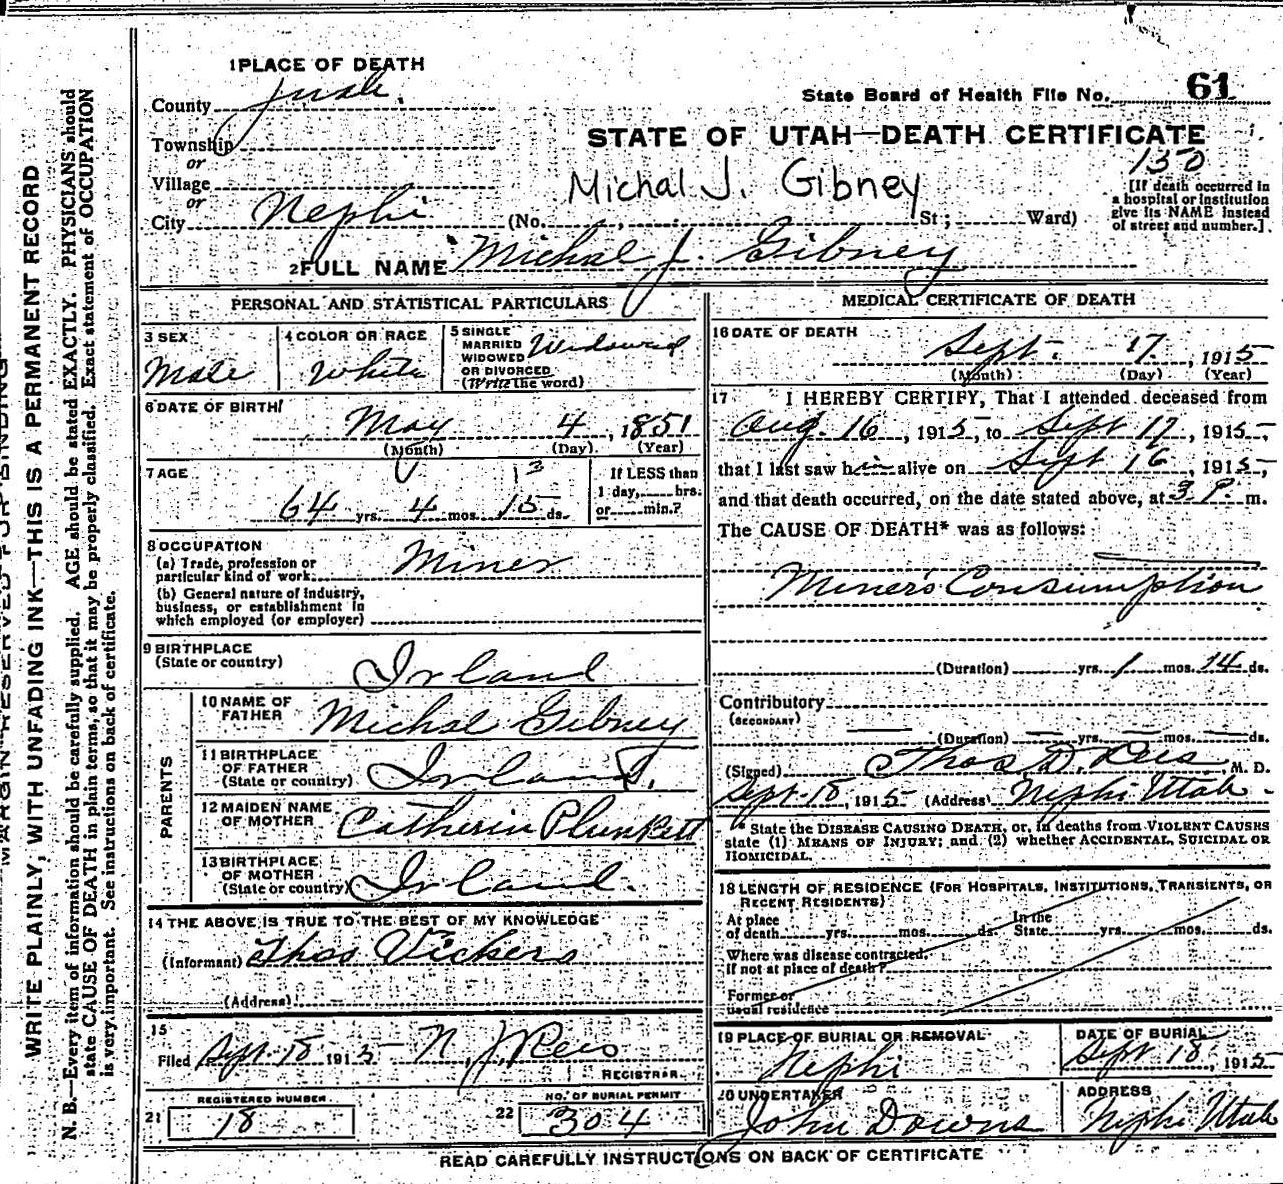 1 PLACE OF DEATH
County Juab.
Township
or
Village
or
City Nephi (No. St; Ward)
State Board of Health File No. 61
STATE OF UTAH—DEATH CERTIFICATE
130
Michal J. Gibney
[If death occurred in
a hospital or institution
give its NAME instead
of street and number.]
2 FULL NAME Michal J. Gibney
PERSONAL AND STATISTICAL PARTICULARS
3 SEX
Male
4 COLOR OR RACE
White
5 SINGLE
MARRIED
WIDOWED
OR DIVORCED
(Write the word)
Widowed
6 DATE OF BIRTH
May 4, 1851
(Month) (Day) (Year)
7 AGE
13
64 yrs. 4 mos. 15 ds.
If LESS than
1 day, hrs.
or min.?
8 OCCUPATION
(a) Trade, profession or
particular kind of work Miner
(b) General nature of industry,
business, or establishment in
which employed (or employer)
9 BIRTHPLACE
(State or country) Irland
PARENTS
10 NAME OF
FATHER Michal Gibney
11 BIRTHPLACE
OF FATHER
(State or country) Irland
12 MAIDEN NAME
OF MOTHER Catherin Plunkett
13 BIRTHPLACE
OF MOTHER
(State or country) Irland.
14 THE ABOVE IS TRUE TO THE BEST OF MY KNOWLEDGE
(Informant) Thos Vickers
(Address)
15
Filed Sept. 18 1915 N. J. Rees
REGISTRAR
REGISTERED NUMBER
21 18
NO. OF BURIAL PERMIT
22 304
MEDICAL CERTIFICATE OF DEATH
16 DATE OF DEATH
Sept. 17, 1915
(Month) (Day) (Year)
17 I HEREBY CERTIFY, That I attended deceased from
Aug. 16, 1915, to Sept 17, 1915,
that I last saw him alive on Sept 16, 1915,
and that death occurred, on the date stated above, at 3 P. m.
The CAUSE OF DEATH* was as follows:
Miner's Consumption
(Duration) yrs. 1 mos. 14 ds.
Contributory
(SECONDARY)
(Duration) — yrs. — mos. — ds.
(Signed) Thos D. Rees, M. D.
Sept. 18, 1915 (Address) Nephi Utah.
* State the DISEASE CAUSING DEATH, or, in deaths from VIOLENT CAUSES
state (1) MEANS OF INJURY; and (2) whether ACCIDENTAL, SUICIDAL OR
HOMICIDAL.
18 LENGTH OF RESIDENCE (FOR HOSPITALS, INSTITUTIONS, TRANSIENTS, OR
RECENT RESIDENTS)
At place
of death yrs. mos. ds.
In the
State yrs. mos. ds.
Where was disease contracted,
if not at place of death?
Former or
usual residence
19 PLACE OF BURIAL OR REMOVAL
Nephi
DATE OF BURIAL
Sept 18, 1915
20 UNDERTAKER
John Downs
ADDRESS
Nephi Utah
READ CAREFULLY INSTRUCTIONS ON BACK OF CERTIFICATE
MARGIN RESERVED FOR BINDING
WRITE PLAINLY, WITH UNFADING INK—THIS IS A PERMANENT RECORD
N. B.—Every item of information should be carefully supplied. AGE should be stated EXACTLY. PHYSICIANS should
state CAUSE OF DEATH in plain terms, so that it may be properly classified. Exact statement of OCCUPATION
is very important. See instructions on back of certificate.